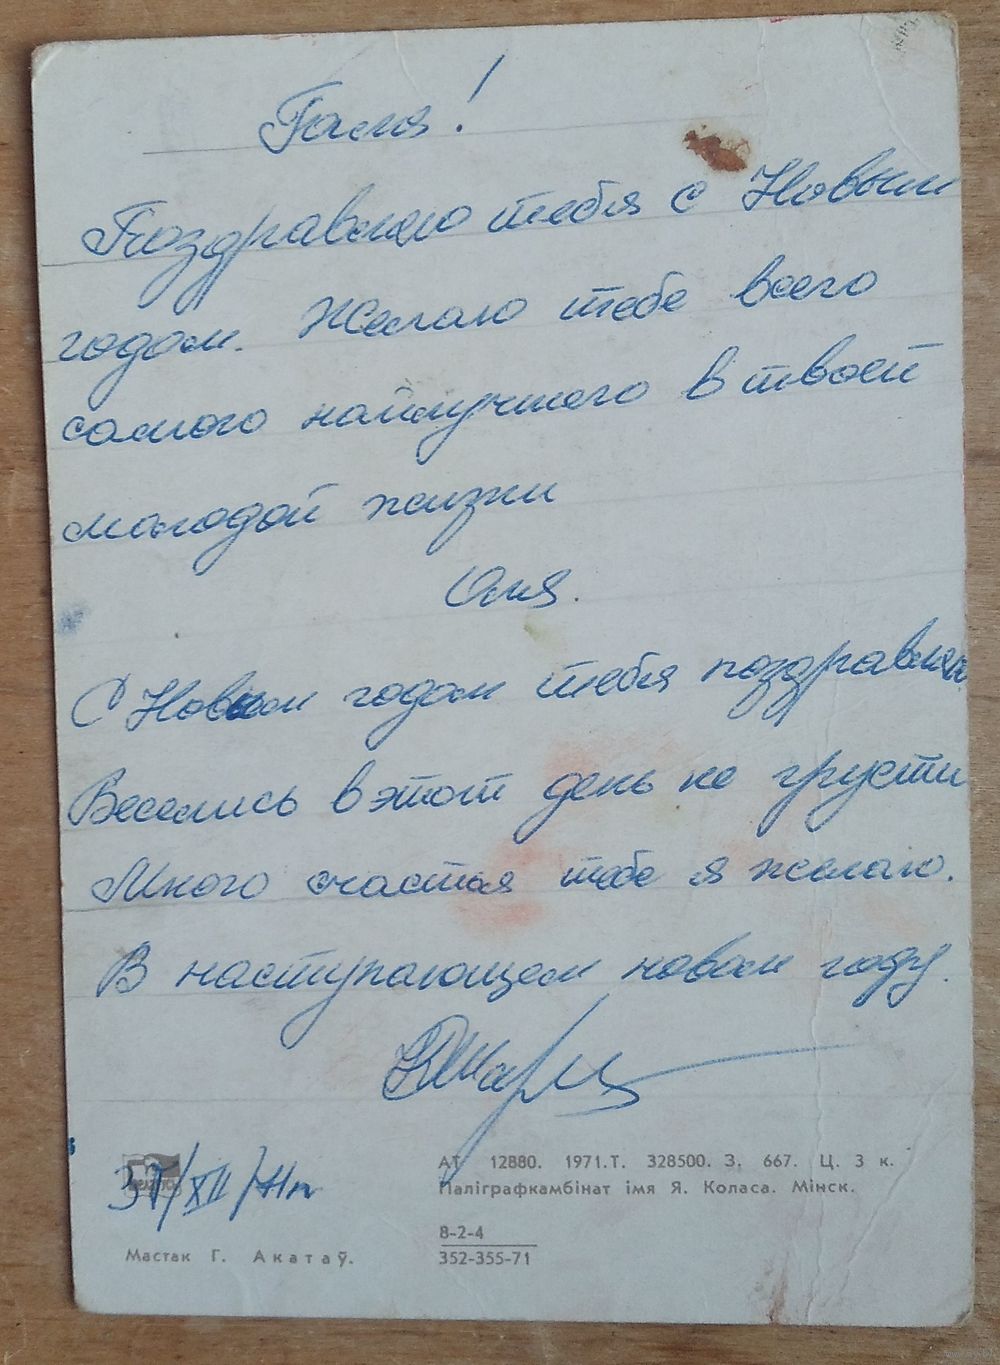 Галя!
Поздравляю тебя с Новым
годом. Желаю тебе всего
самого найлучшего в твоей
молодой жизни
Оля.
С Новым годом тебя поздравляю
Веселись в этот день не грусти
Много счастья тебе я желаю.
В наступающем новом году.
31/XII/71г
АТ 12880. 1971. Т. 328500. З. 667. Ц. 3 к.
Паліграфкамбінат імя Я. Коласа. Мінск.
8-2-4
352-355-71
Мастак Г. Акатаў.